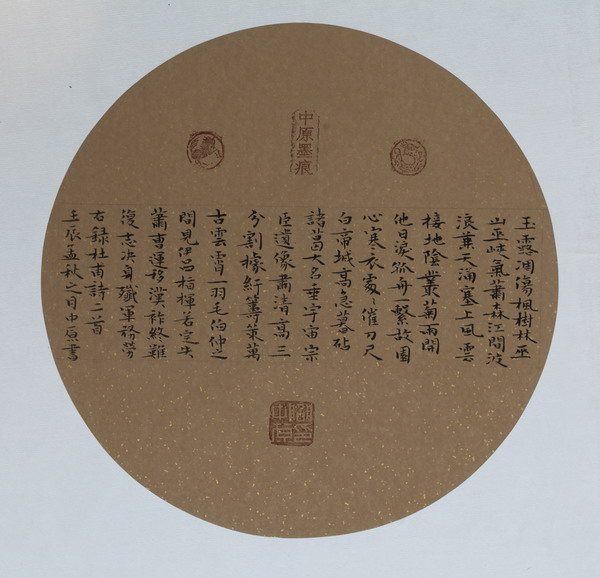 中原墨痕
玉露凋傷楓樹林巫
山巫峽氣蕭森江間波
浪兼天涌塞上風雲
接地陰叢菊兩開
他日淚孤舟一繫故園
心寒衣處〻催刀尺
白帝城高急暮砧
諸葛大名垂宇宙宗
臣遺像肅清高三
分割據紆籌策萬
古雲霄一羽毛伯仲之
間見伊呂指揮若定失
蕭曹運移漢祚終難
復志决身殲軍務勞
右録杜甫詩二首
壬辰孟秋之月中原書